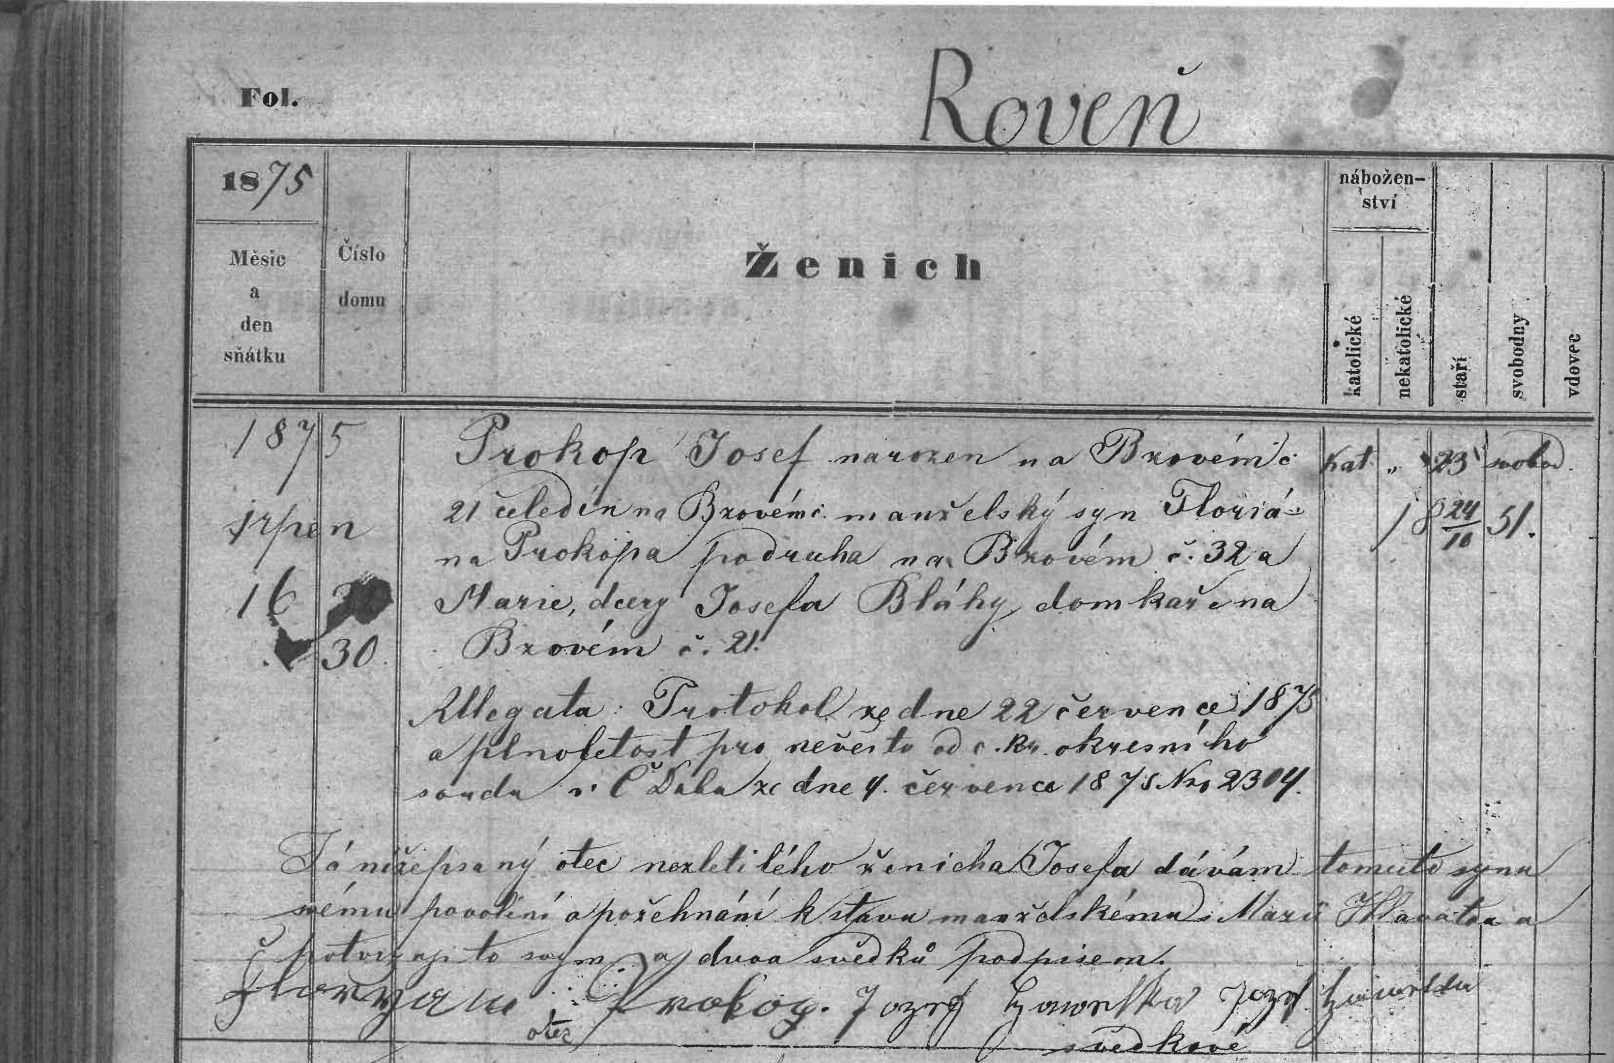 Fol.
Roveň
1875
nábožen-
ství
Měsíc
a
den
sňátku
Číslo
domu
Ženich
katolické
nekatolické
stáří
svobodny
vdovec
1875
srpen
16
30
Prokop Josef narozen na Bzovém č. kat „ 23 svobod.
21 čeledín na Bzovém č. manželský syn Floriá- 18 24/10 51.
na Prokopa podruha na Bzovém č. 32 a
Marie, dcery Josefa Bláhy, domkaře na
Bzovém č. 21.
Allegata: Protokol ze dne 22 července 1875
a plnoletost pro nevěstu od c. kr. okresního
soudu v Č Dubu ze dne 4. července 1875 Nro 2304.
Já nížepsaný otec nezletilého ženicha Josefa dávám tomuto synu
svému povolení a požehnání k stavu manželskému s Marií Hlavatou a
potvrzuji to svým a dvou svědků podpisem.
Floryan Prokop. Jozef Jozef
otec
svědkové